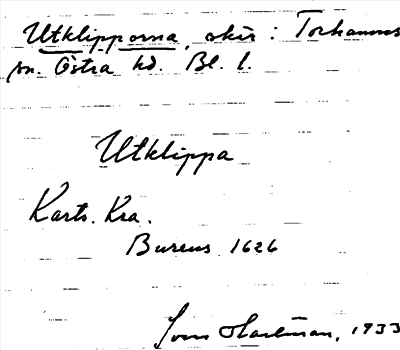 Utklipporna, skär i Torhamns
sn. Östra hd. Bl. l.
Utklippa
Karto. Kra.
Bureus 1626
Hartman, 1933